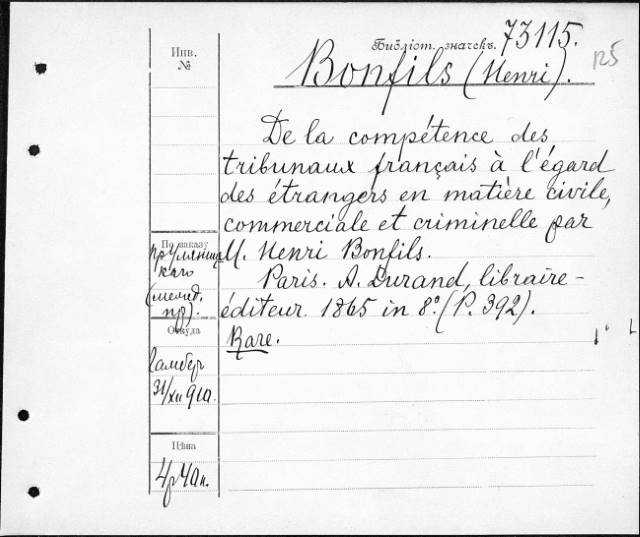 Инв.
№
Библіот. значекъ. 73115.
125
Bonfils (Henri).
De la compétence des
tribunaux français à l'égard
des étrangers en matière civile,
commerciale et criminelle par
M. Henri Bonfils.
Paris. A. Durand, libraire-
éditeur. 1865 in 8º. (P. 392).
Rare.
По заказу
каго
(межд.
пр).
Откуда
31/XII 910.
Цѣна
4р 40к.